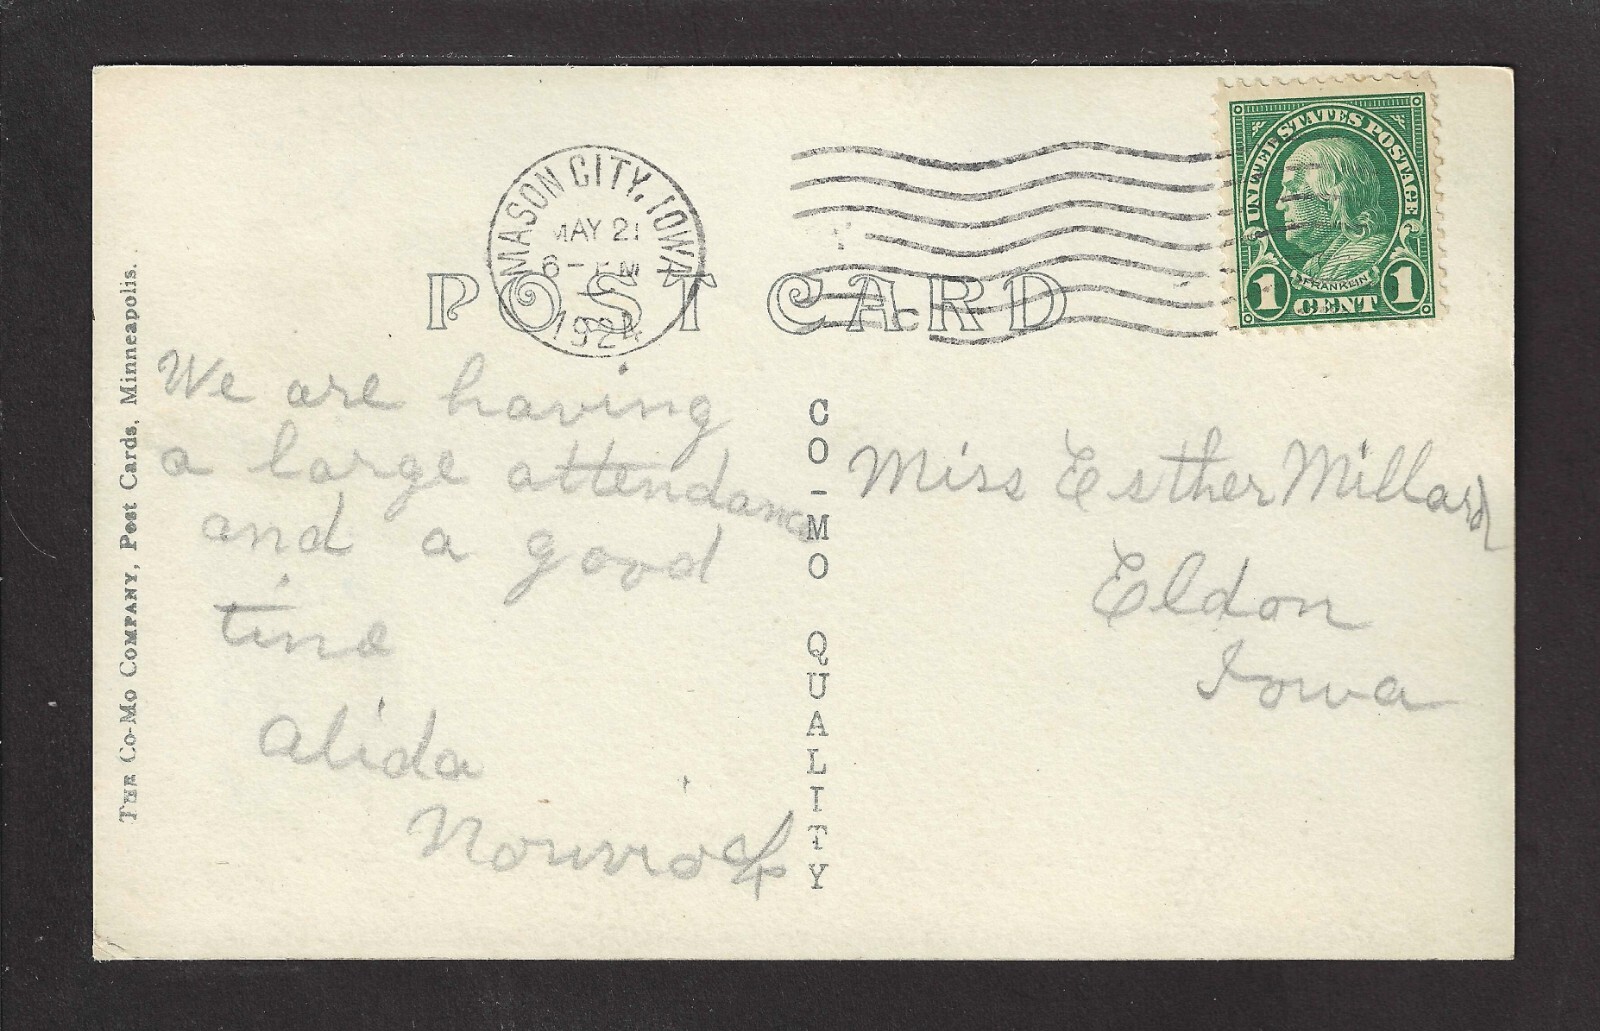 THE CO-MO COMPANY, Post Cards, Minneapolis.
MASON CITY, IOWA
MAY 21
6-PM
1924
POST CARD
UNITED STATES POSTAGE
FRANKLIN
1 CENT 1
We are having
a large attendance
and a good
time
Alida
CO-MO QUALITY
Miss Esther Millard
Eldon
Iowa